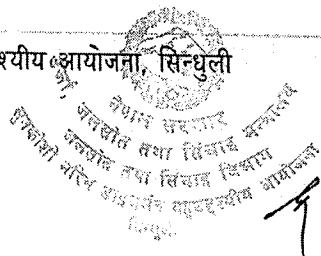 श्यीय आयोजना, सिन्धुली
नेपाल सरकार
ऊर्जा, जलस्रोत तथा सिंचाइ मन्त्रालय
जलस्रोत तथा सिंचाइ विभाग
सुनकोशी मरिन डाइभर्सन बहुउद्देश्यीय आयोजना